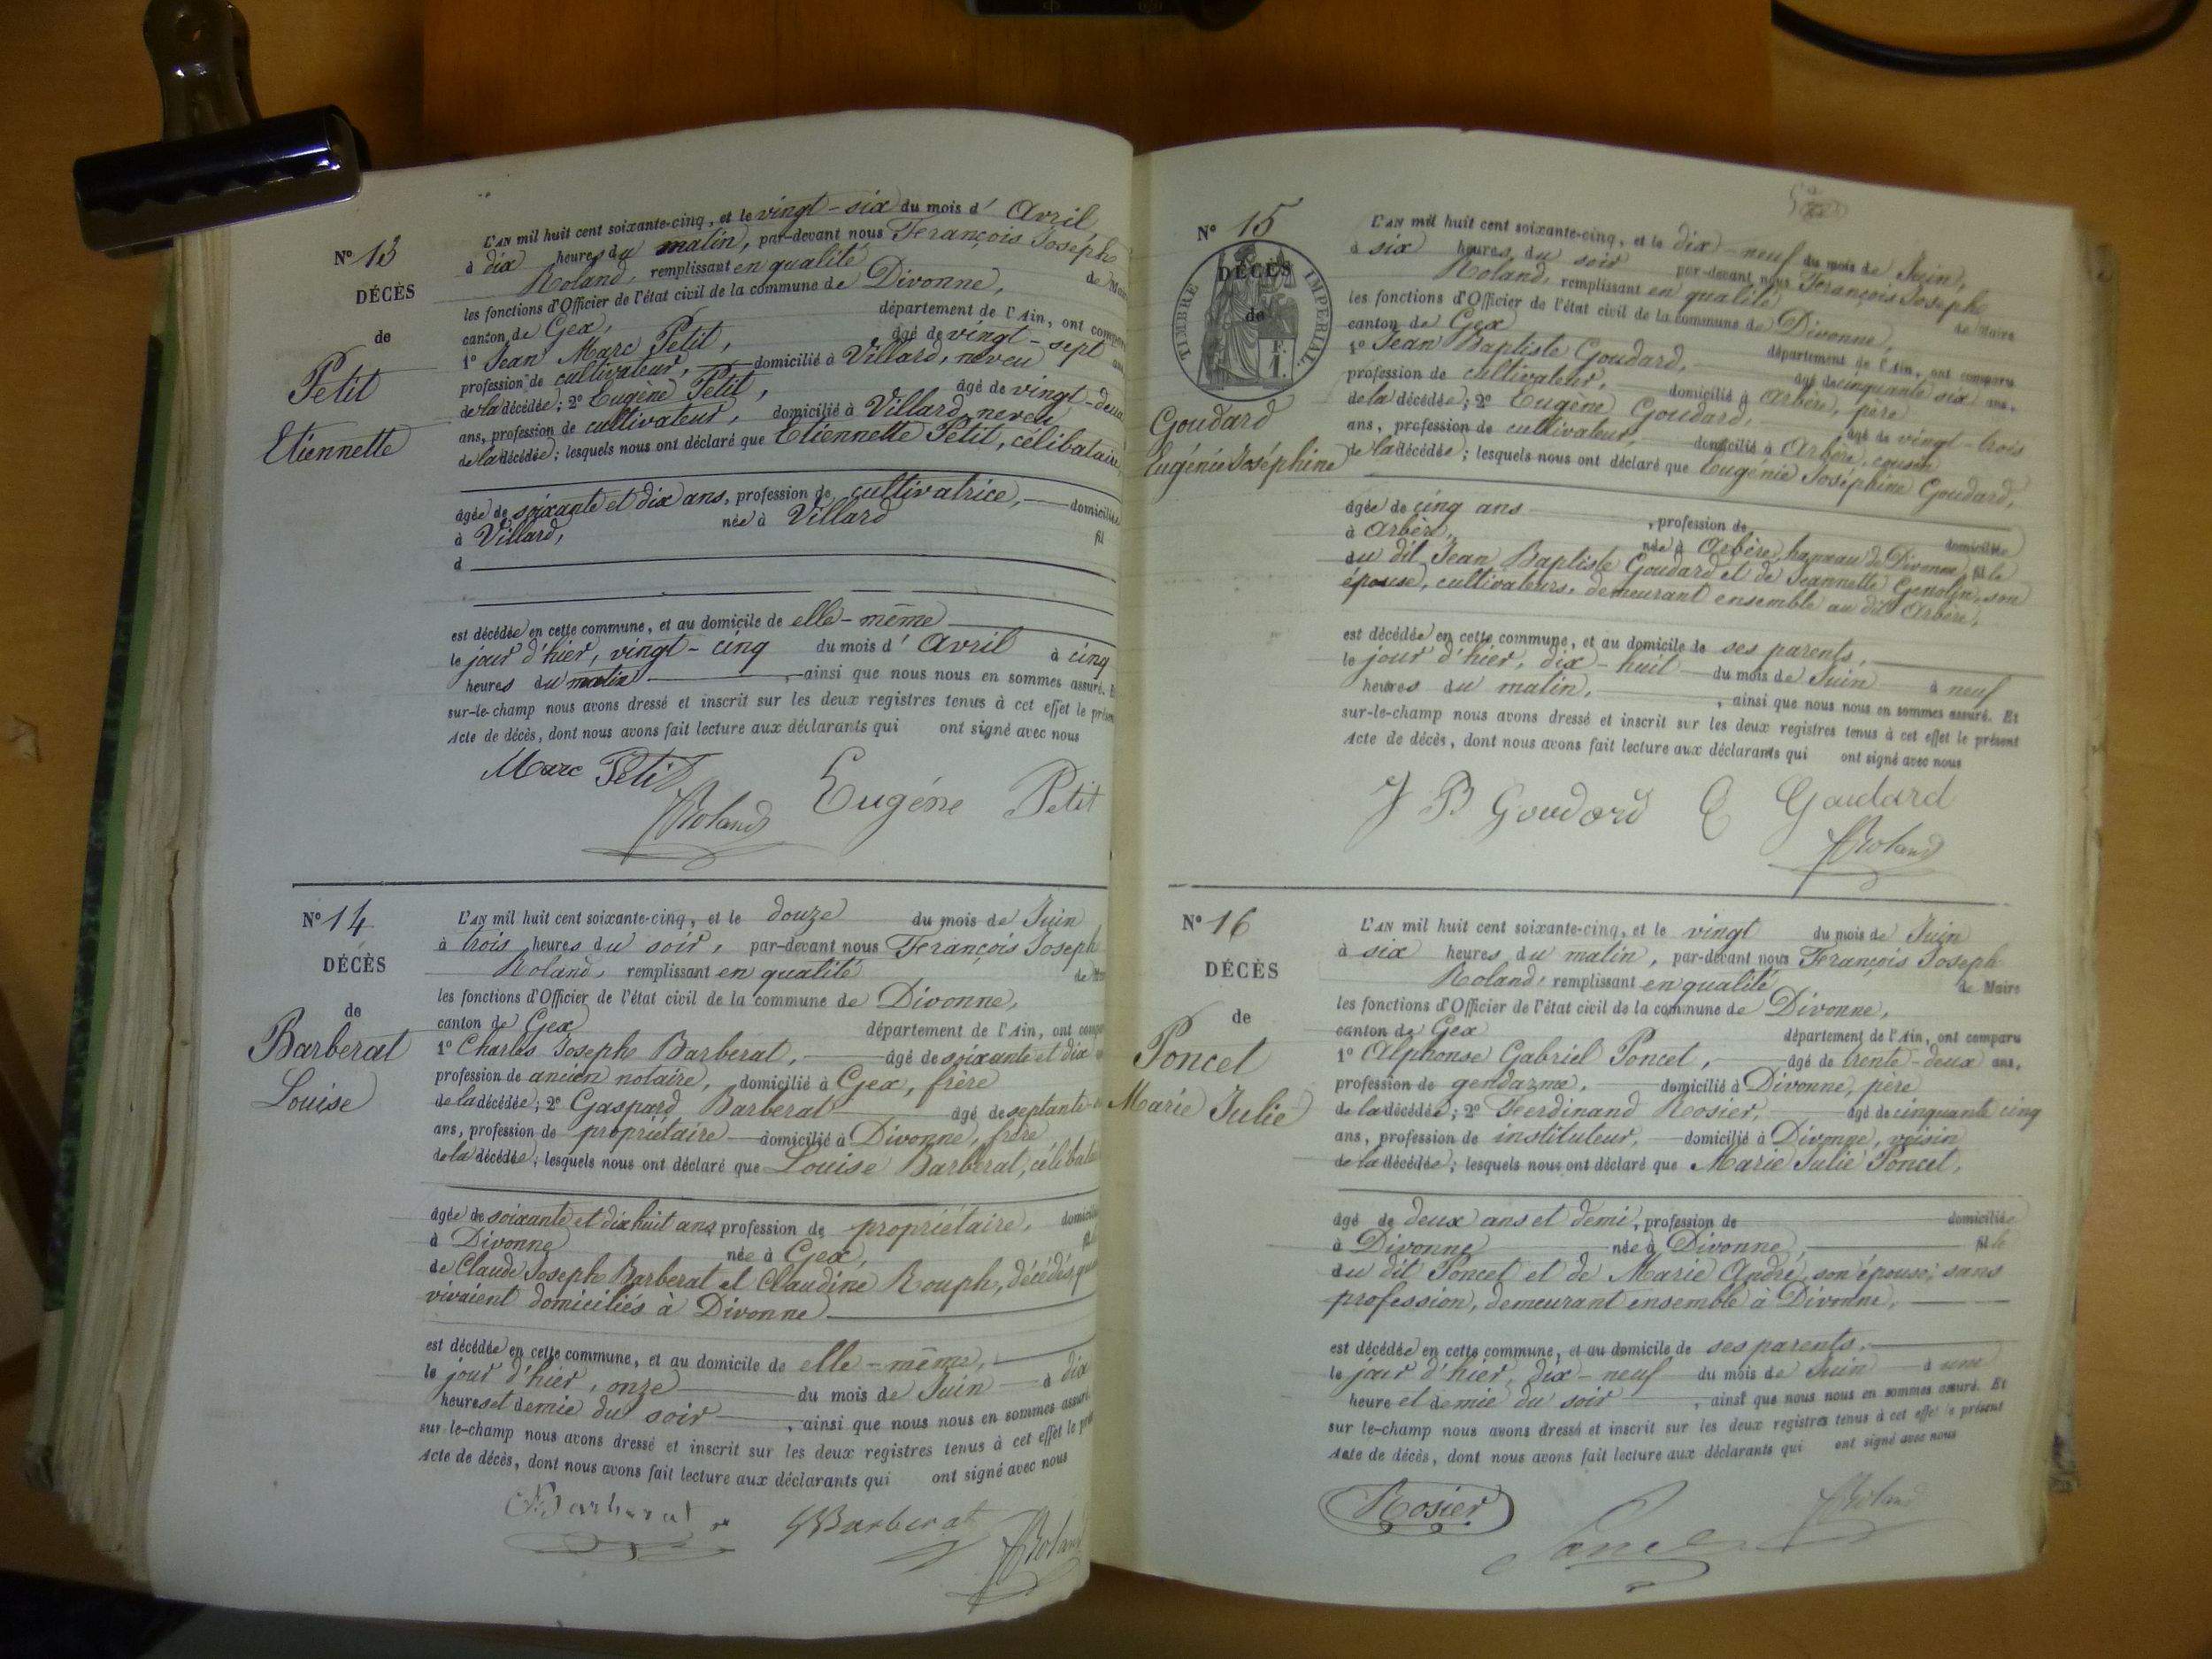 Nº 13
DÉCÈS
de
Petit
Etiennette
L'AN mil huit cent soixante-cinq, et le vingt-six du mois d' Avril,
à dix heures du matin, par-devant nous François Joseph
Roland, remplissant en qualité de Maire
les fonctions d'Officier de l'état civil de la commune de Divonne,
canton de Gex, département de l'Ain, ont comparu
1º Jean Marc Petit, âgé de vingt-sept ans
profession de cultivateur, domicilié à Villard, neveu
de la décédée; 2º Eugène Petit, âgé de vingt-deux
ans, profession de cultivateur, domicilié à Villard, neveu
de la décédée; lesquels nous ont déclaré que Etiennette Petit, célibataire
âgée de soixante et dix ans, profession de cultivatrice, domiciliée
à Villard, née à Villard fil
d
est décédée en cette commune, et au domicile de elle-même
le jour d'hier, vingt-cinq du mois d' Avril à cinq
heures du matin, ainsi que nous nous en sommes assuré. Et
sur-le-champ nous avons dressé et inscrit sur les deux registres tenus à cet effet le présent
Acte de décès, dont nous avons fait lecture aux déclarants qui ont signé avec nous
Marc Petit
Roland Eugéne Petit
Nº 14
DÉCÈS
de
Barberat
Louise
L'AN mil huit cent soixante-cinq, et le douze du mois de Juin
à trois heures du soir, par-devant nous François Joseph
Roland, remplissant en qualité de Maire
les fonctions d'Officier de l'état civil de la commune de Divonne,
canton de Gex département de l'Ain, ont comparu
1º Charles Joseph Barberat, âgé de soixante et dix
profession de ancien notaire, domicilié à Gex, frère
de la décédée; 2º Gaspard Barberat âgé de septante
ans, profession de propriétaire domicilié à Divonne, frère
de la décédée; lesquels nous ont déclaré que Louise Barberat, céliba
âgée de soixante et dix huit ans profession de propriétaire, domicili
à Divonne née à Gex, fil
de Claude Joseph Barberat et Claudine Rouph, décédés, qu
vivaient domiciliés à Divonne
est décédée en cette commune, et au domicile de elle-même,
le jour d'hier, onze du mois de Juin à dix
heures et demie du soir, ainsi que nous nous en sommes assuré.
sur-le-champ nous avons dressé et inscrit sur les deux registres tenus à cet effet le pré
Acte de décès, dont nous avons fait lecture aux déclarants qui ont signé avec nous
Barberat G Barberat Roland
Nº 15
DÉCÈS
de
TIMBRE IMPÉRIAL
F.
1.
Goudard
Eugénie Joséphine
L'AN mil huit cent soixante-cinq, et le dix-neuf du mois de Juin,
à six heures, du soir par-devant nous François Joseph
Roland, remplissant en qualité de Maire
les fonctions d'Officier de l'état civil de la commune de Divonne,
canton de Gex département de l'Ain, ont comparu
1º Jean Baptiste Goudard, âgé de cinquante six ans,
profession de cultivateur, domicilié à Arbère, père
de la décédée; 2º Eugène Goudard, âgé de vingt-trois
ans, profession de cultivateur, domicilié à Arbère, cousin
de la décédée; lesquels nous ont déclaré que Eugénie Joséphine Goudard,
âgée de cinq ans, profession de domiciliée
à Arbère, née à Arbère, hameau de Divonne, fille
du dit Jean Baptiste Goudard et de Jeannette Genolin, son
épouse, cultivateurs, demeurant ensemble au dit Arbère,
est décédée en cette commune, et au domicile de ses parents,
le jour d'hier, dix-huit du mois de Juin à neuf
heures du matin, ainsi que nous nous en sommes assuré. Et
sur-le-champ nous avons dressé et inscrit sur les deux registres tenus à cet effet le présent
Acte de décès, dont nous avons fait lecture aux déclarants qui ont signé avec nous
J B Goudard E Goudard
Roland
Nº 16
DÉCÈS
de
Poncet
Marie Julie
L'AN mil huit cent soixante-cinq, et le vingt du mois de Juin
à six heures du matin, par-devant nous François Joseph
Roland, remplissant en qualité de Maire
les fonctions d'Officier de l'état civil de la commune de Divonne,
canton de Gex département de l'Ain, ont comparu
1º Alphonse Gabriel Poncet, âgé de trente-deux ans,
profession de gendarme, domicilié à Divonne, père
de la décédée; 2º Ferdinand Rosier, âgé de cinquante cinq
ans, profession de instituteur, domicilié à Divonne, voisin
de la décédée; lesquels nous ont déclaré que Marie Julie Poncet,
âgé de deux ans et demi, profession de domiciliée
à Divonne née à Divonne, fille
du dit Poncet et de Marie André, son épouse, sans
profession, demeurant ensemble à Divonne,
est décédée en cette commune, et au domicile de ses parents,
le jour d'hier, dix-neuf du mois de Juin à une
heure et demie du soir, ainsi que nous nous en sommes assuré. Et
sur le-champ nous avons dressé et inscrit sur les deux registres tenus à cet effet le présent
Acte de décès, dont nous avons fait lecture aux déclarants qui ont signé avec nous
Rosier Poncet Roland